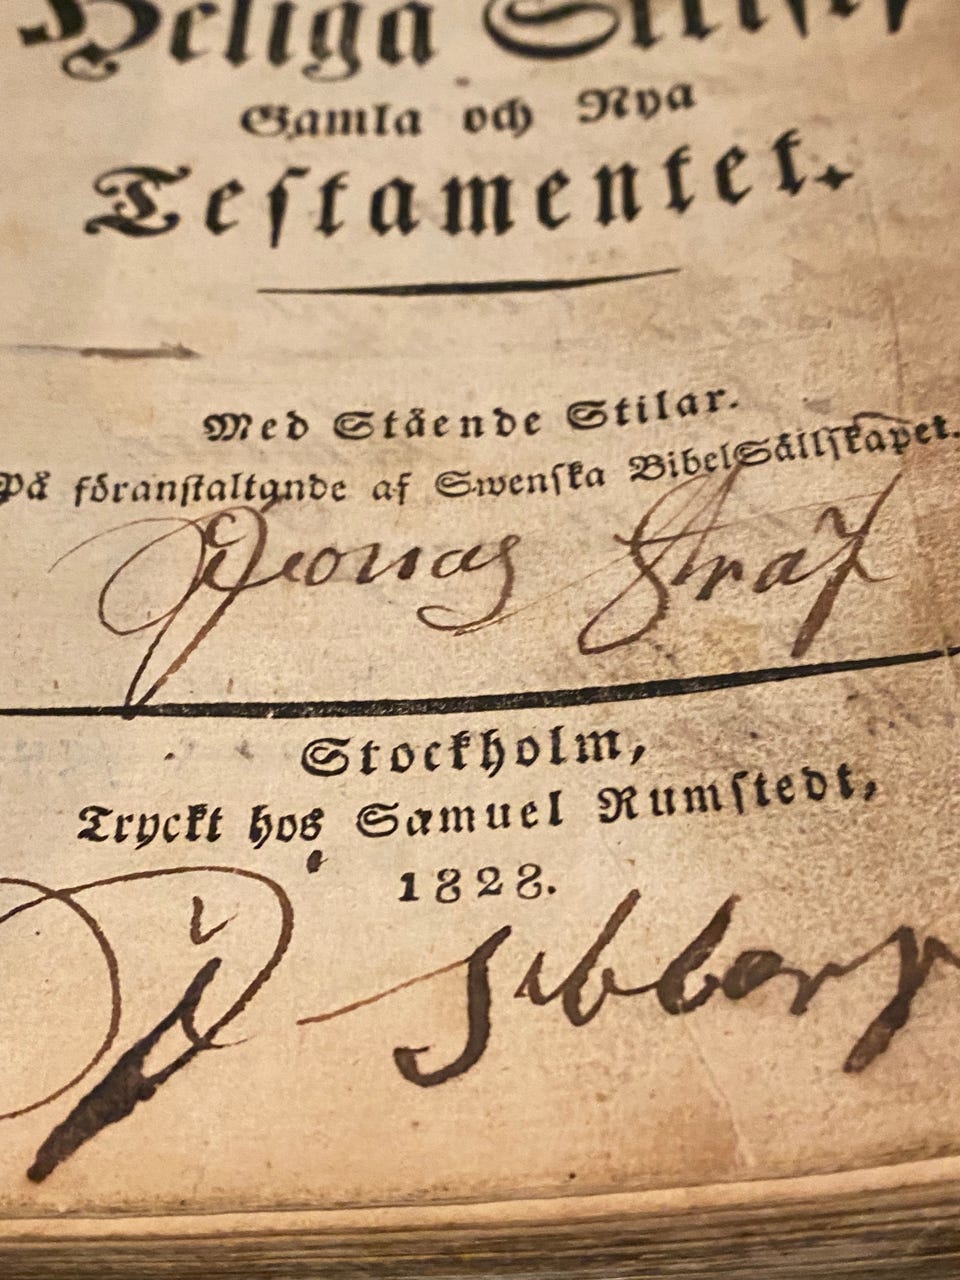 Heliga Skrift
Gamla och Nya
Testamentet.
Med Stående Stilar.
På föranstaltande af Swenska BibelSällskapet.
Jonas
Stockholm,
Tryckt hos Samuel Rumstedt,
1828.